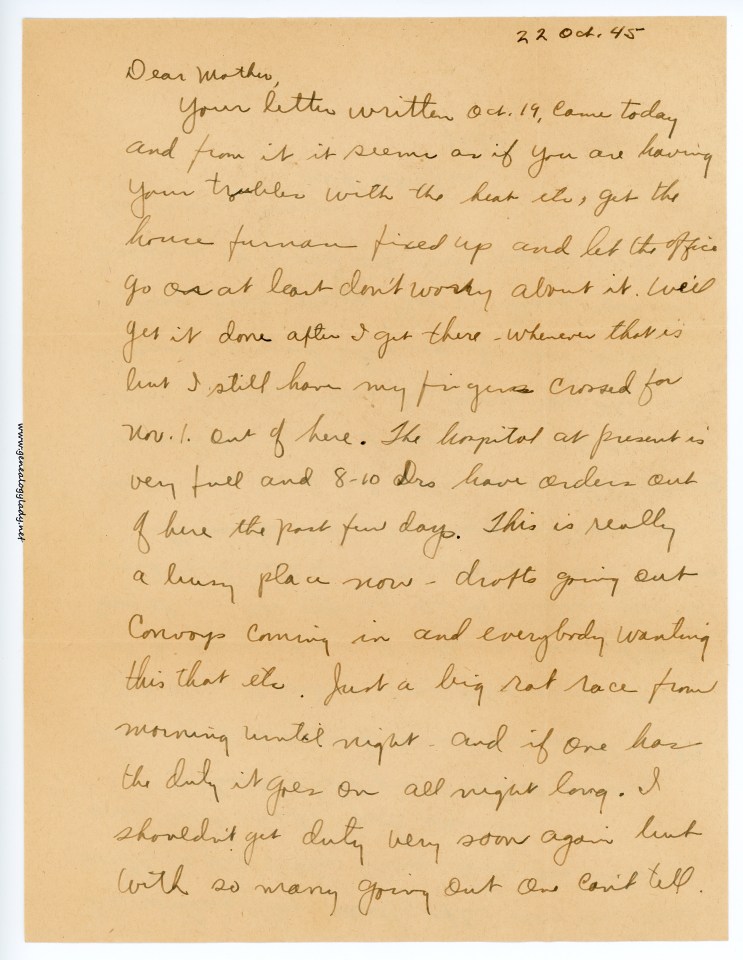 22 Oct. 45
Dear Mother,
Your letter written Oct. 19, came today
and from it it seems as if you are having
your troubles with the heat etc, get the
house furnace fixed up and let the office
go or at least don't worry about it. We'll
get it done after I get there - whenever that is
but I still have my fingers crossed for
Nov. 1. out of here. The hospital at present is
very full and 8-10 Drs have orders out
of here the past few days. This is really
a busy place now - drafts going out
Convoys coming in and everybody wanting
this that etc. Just a big rat race from
morning until night - and if one has
the duty it goes on all night long. I
shouldn't get duty very soon again but
with so many going out one can't tell.
www.genealogylady.net